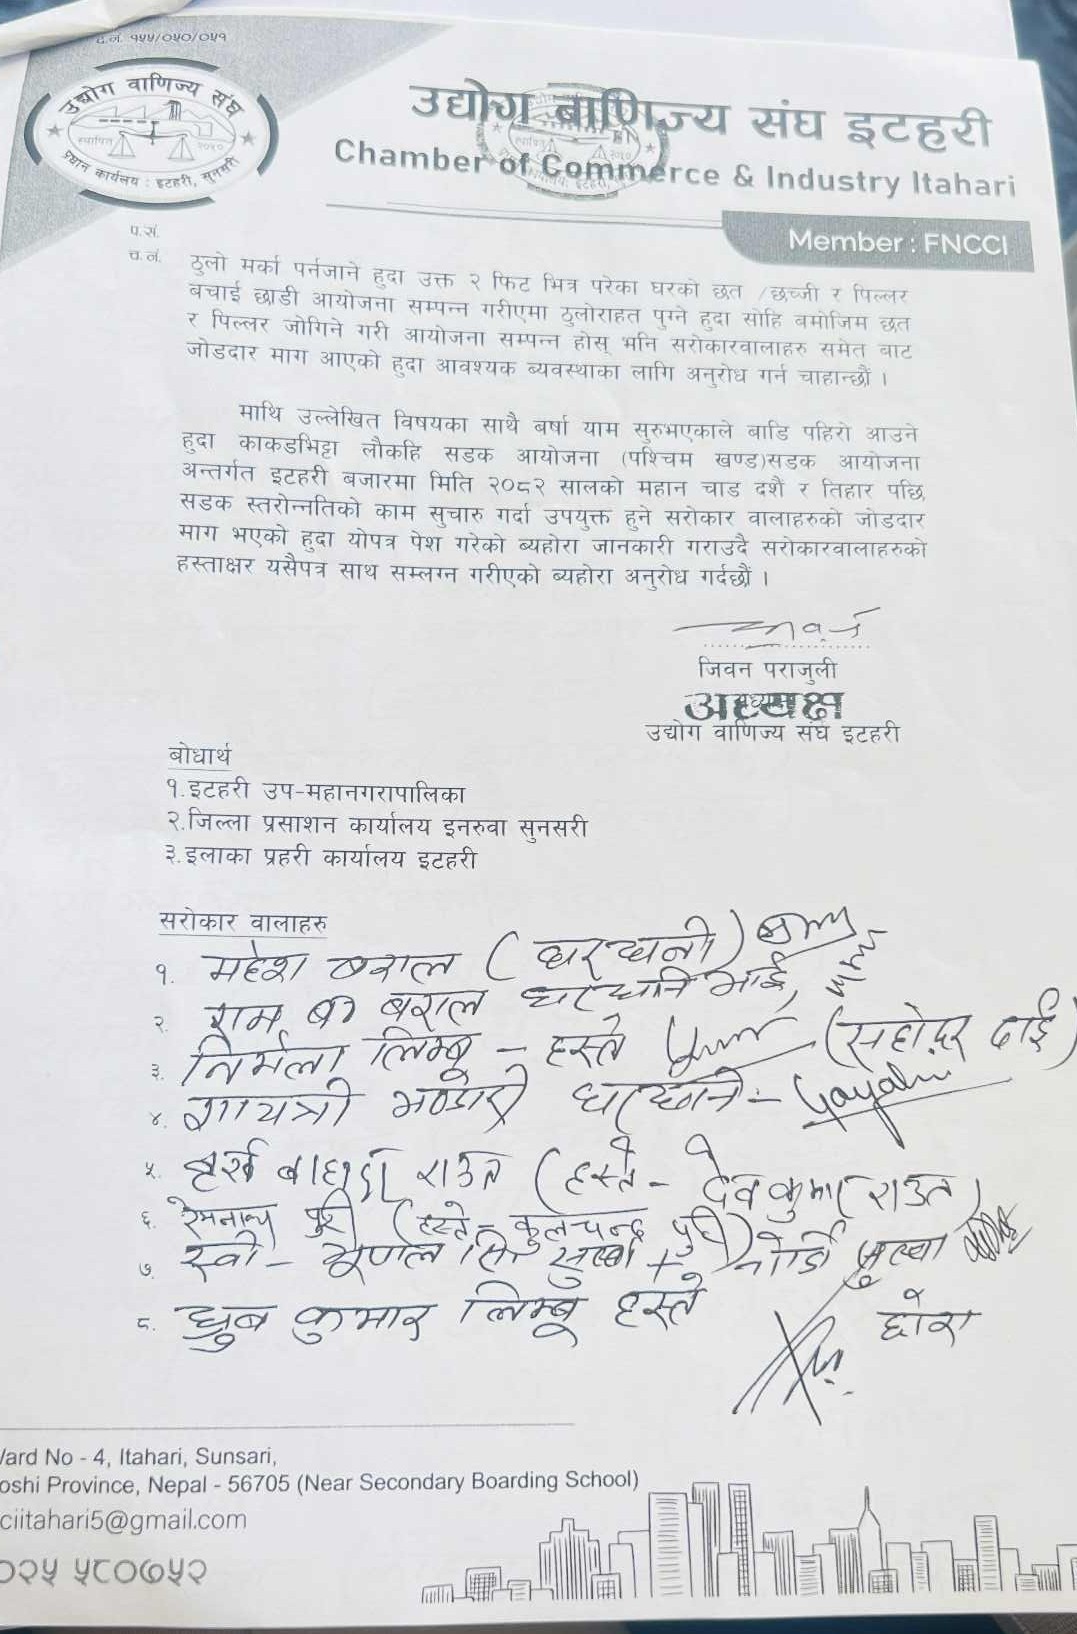 द.नं. १५५/०५०/०५१
उद्योग वाणिज्य संघ
स्थापित २०५०
प्रधान कार्यालय : इटहरी, सुनसरी
उद्योग वाणिज्य संघ इटहरी
Chamber of Commerce & Industry Itahari
Member : FNCCI
प.सं.
च.नं.
ठुलो मर्का पर्नजाने हुदा उक्त २ फिट भित्र परेका घरको छत /छज्जी र पिल्लर
बचाई छाडी आयोजना सम्पन्न गरीएमा ठुलोराहत पुग्ने हुदा सोहि बमोजिम छत
र पिल्लर जोगिने गरी आयोजना सम्पन्न होस् भनि सरोकारवालाहरु समेत बाट
जोडदार माग आएको हुदा आवश्यक ब्यवस्थाका लागि अनुरोध गर्न चाहान्छौं ।
माथि उल्लेखित विषयका साथै बर्षा याम सुरुभएकाले बाडि पहिरो आउने
हुदा काकडभिट्टा लौकहि सडक आयोजना (पश्चिम खण्ड)सडक आयोजना
अन्तर्गत इटहरी बजारमा मिति २०८२ सालको महान चाड दशैं र तिहार पछि
सडक स्तरोन्नतिको काम सुचारु गर्दा उपयुक्त हुने सरोकार वालाहरुको जोडदार
माग भएको हुदा योपत्र पेश गरेको ब्यहोरा जानकारी गराउदै सरोकारवालाहरुको
हस्ताक्षर यसैपत्र साथ सम्लग्न गरीएको ब्यहोरा अनुरोध गर्दछौं ।
जिवन पराजुली
अध्यक्ष
उद्योग वाणिज्य संघ इटहरी
बोधार्थ
१.इटहरी उप-महानगरापालिका
२.जिल्ला प्रसाशन कार्यालय इनरुवा सुनसरी
३.इलाका प्रहरी कार्यालय इटहरी
सरोकार वालाहरु
१. महेश बराल (घरधनी)
२. राम बराल घरधनि भाई,
३. निर्मला लिम्बू – हस्ते (सहोदर दाई)
४. गायत्री भण्डारी घरधनि - Gayatri
५. हर्ख बाहादुर राउत (हस्ते - देवकुमार राउत)
६. पुरी (हस्ते - कुलचन्द्र पुरी)
७. सुब्बा
८. ध्रुब कुमार लिम्बू हस्ते छोरा
Ward No - 4, Itahari, Sunsari,
oshi Province, Nepal - 56705 (Near Secondary Boarding School)
ciitahari5@gmail.com
०२५ ५८०७५२